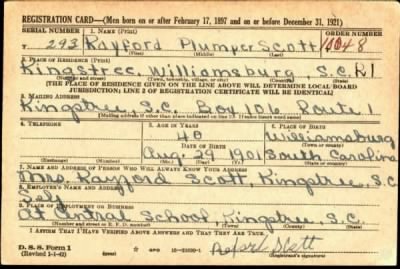 REGISTRATION CARD—(Men born on or after February 17, 1897 and on or before December 31, 1921)
SERIAL NUMBER 1. NAME (Print) ORDER NUMBER
T 293 Rayford Plumper Scott 10048
2. PLACE OF RESIDENCE (Print)
Kingstree, Williamsburg, S.C. R1
(Number and street) (Town, township, village, or city) (County) (State)
[THE PLACE OF RESIDENCE GIVEN ON THE LINE ABOVE WILL DETERMINE LOCAL BOARD
JURISDICTION; LINE 2 OF REGISTRATION CERTIFICATE WILL BE IDENTICAL]
3. MAILING ADDRESS
Kingstree, S.C. Box 106, Route 1
[Mailing address if other than place indicated on line 2. If same insert word same]
4. TELEPHONE 5. AGE IN YEARS 6. PLACE OF BIRTH
40 Williamsburg
DATE OF BIRTH (Town or county)
Aug. 29 1901 South Carolina
(Exchange) (Number) (Mo.) (Day) (Yr.) (State or country)
7. NAME AND ADDRESS OF PERSON WHO WILL ALWAYS KNOW YOUR ADDRESS
Mrs. Rayford Scott, Kingstree, S.C.
8. EMPLOYER'S NAME AND ADDRESS
Self
9. PLACE OF EMPLOYMENT OR BUSINESS
At Central School, Kingstree, S.C.
(Number and street or R. F. D. number) (Town) (County) (State)
I AFFIRM THAT I HAVE VERIFIED ABOVE ANSWERS AND THAT THEY ARE TRUE.
D. S. S. Form 1 GPO Scott
(Revised 1-1-42) (Registrant's signature)